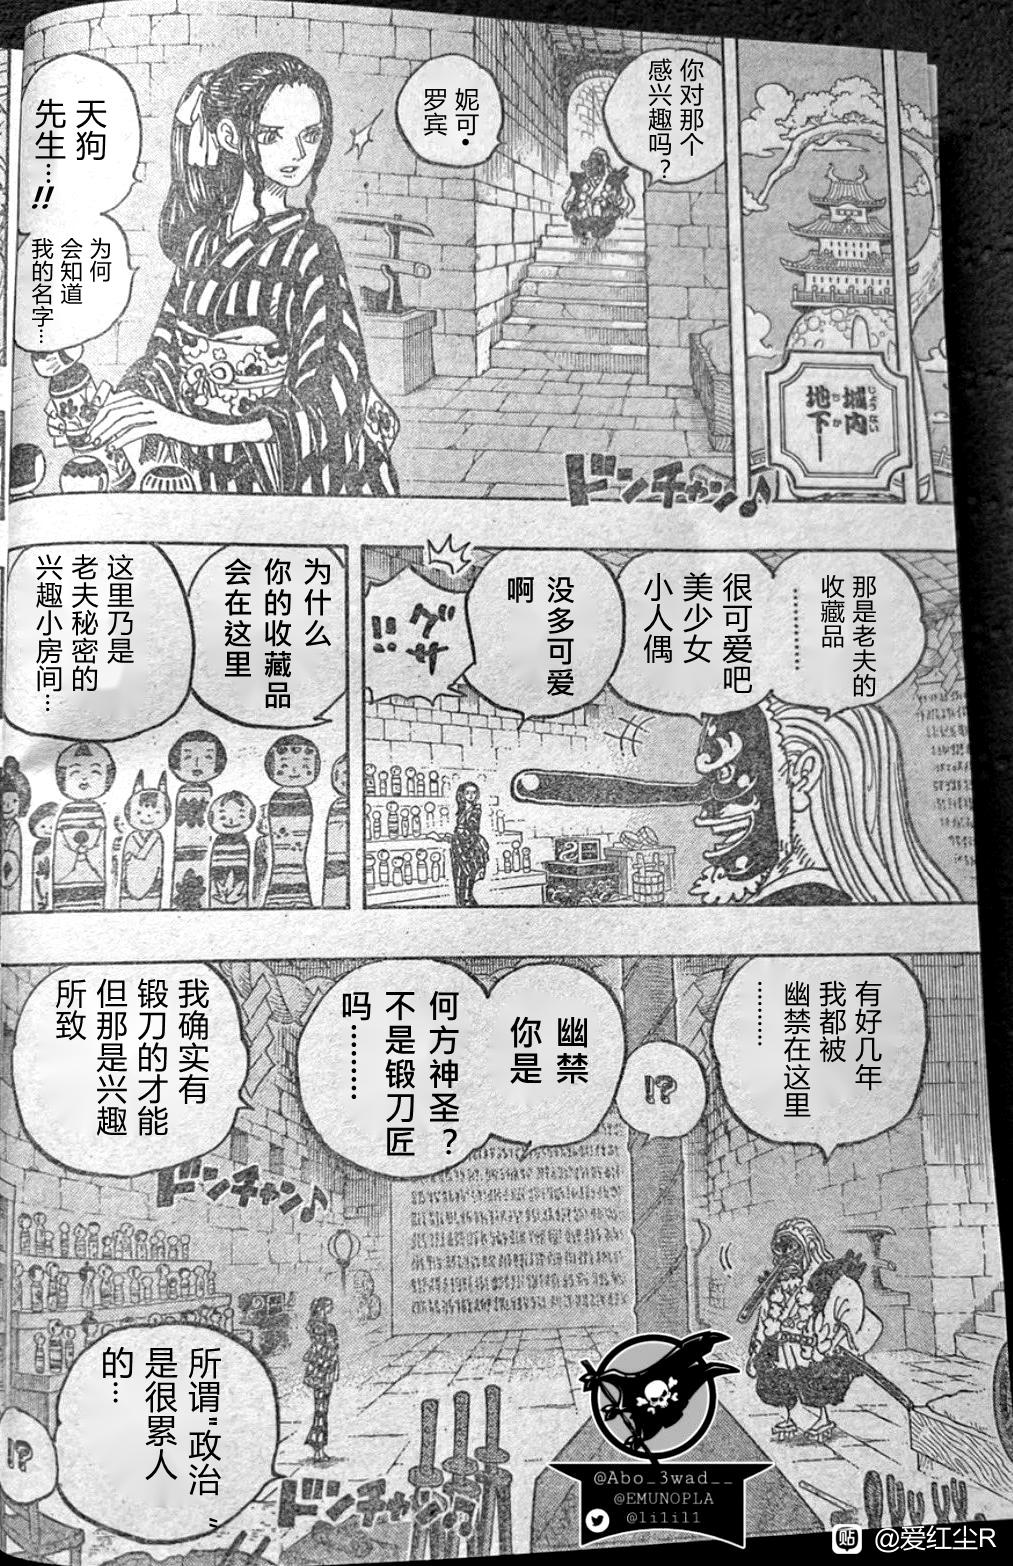 城内
じょうない
地下
ちか
ドンチャン♪
你对那个
感兴趣吗？
妮可·
罗宾
天狗
先生…!!
为何
会知道
我的名字…
那是老夫的
收藏品
…………
很可爱吧
美少女
小人偶
没多可爱
啊
グサ
!!
为什么
你的收藏品
会在这里
这里乃是
老夫秘密的
兴趣小房间…
有好几年
我都被
幽禁在这里
………
!?
幽禁
你是
何方神圣？
不是锻刀匠
吗………
我确实有
锻刀的才能
但那是兴趣
所致
ドンチャン♪
所谓"政治"
是很累人
的…
!?
ドンチャン♪
@Abo_3wad__
@EMUNOPLA
@lilil1
贴 @爱红尘R